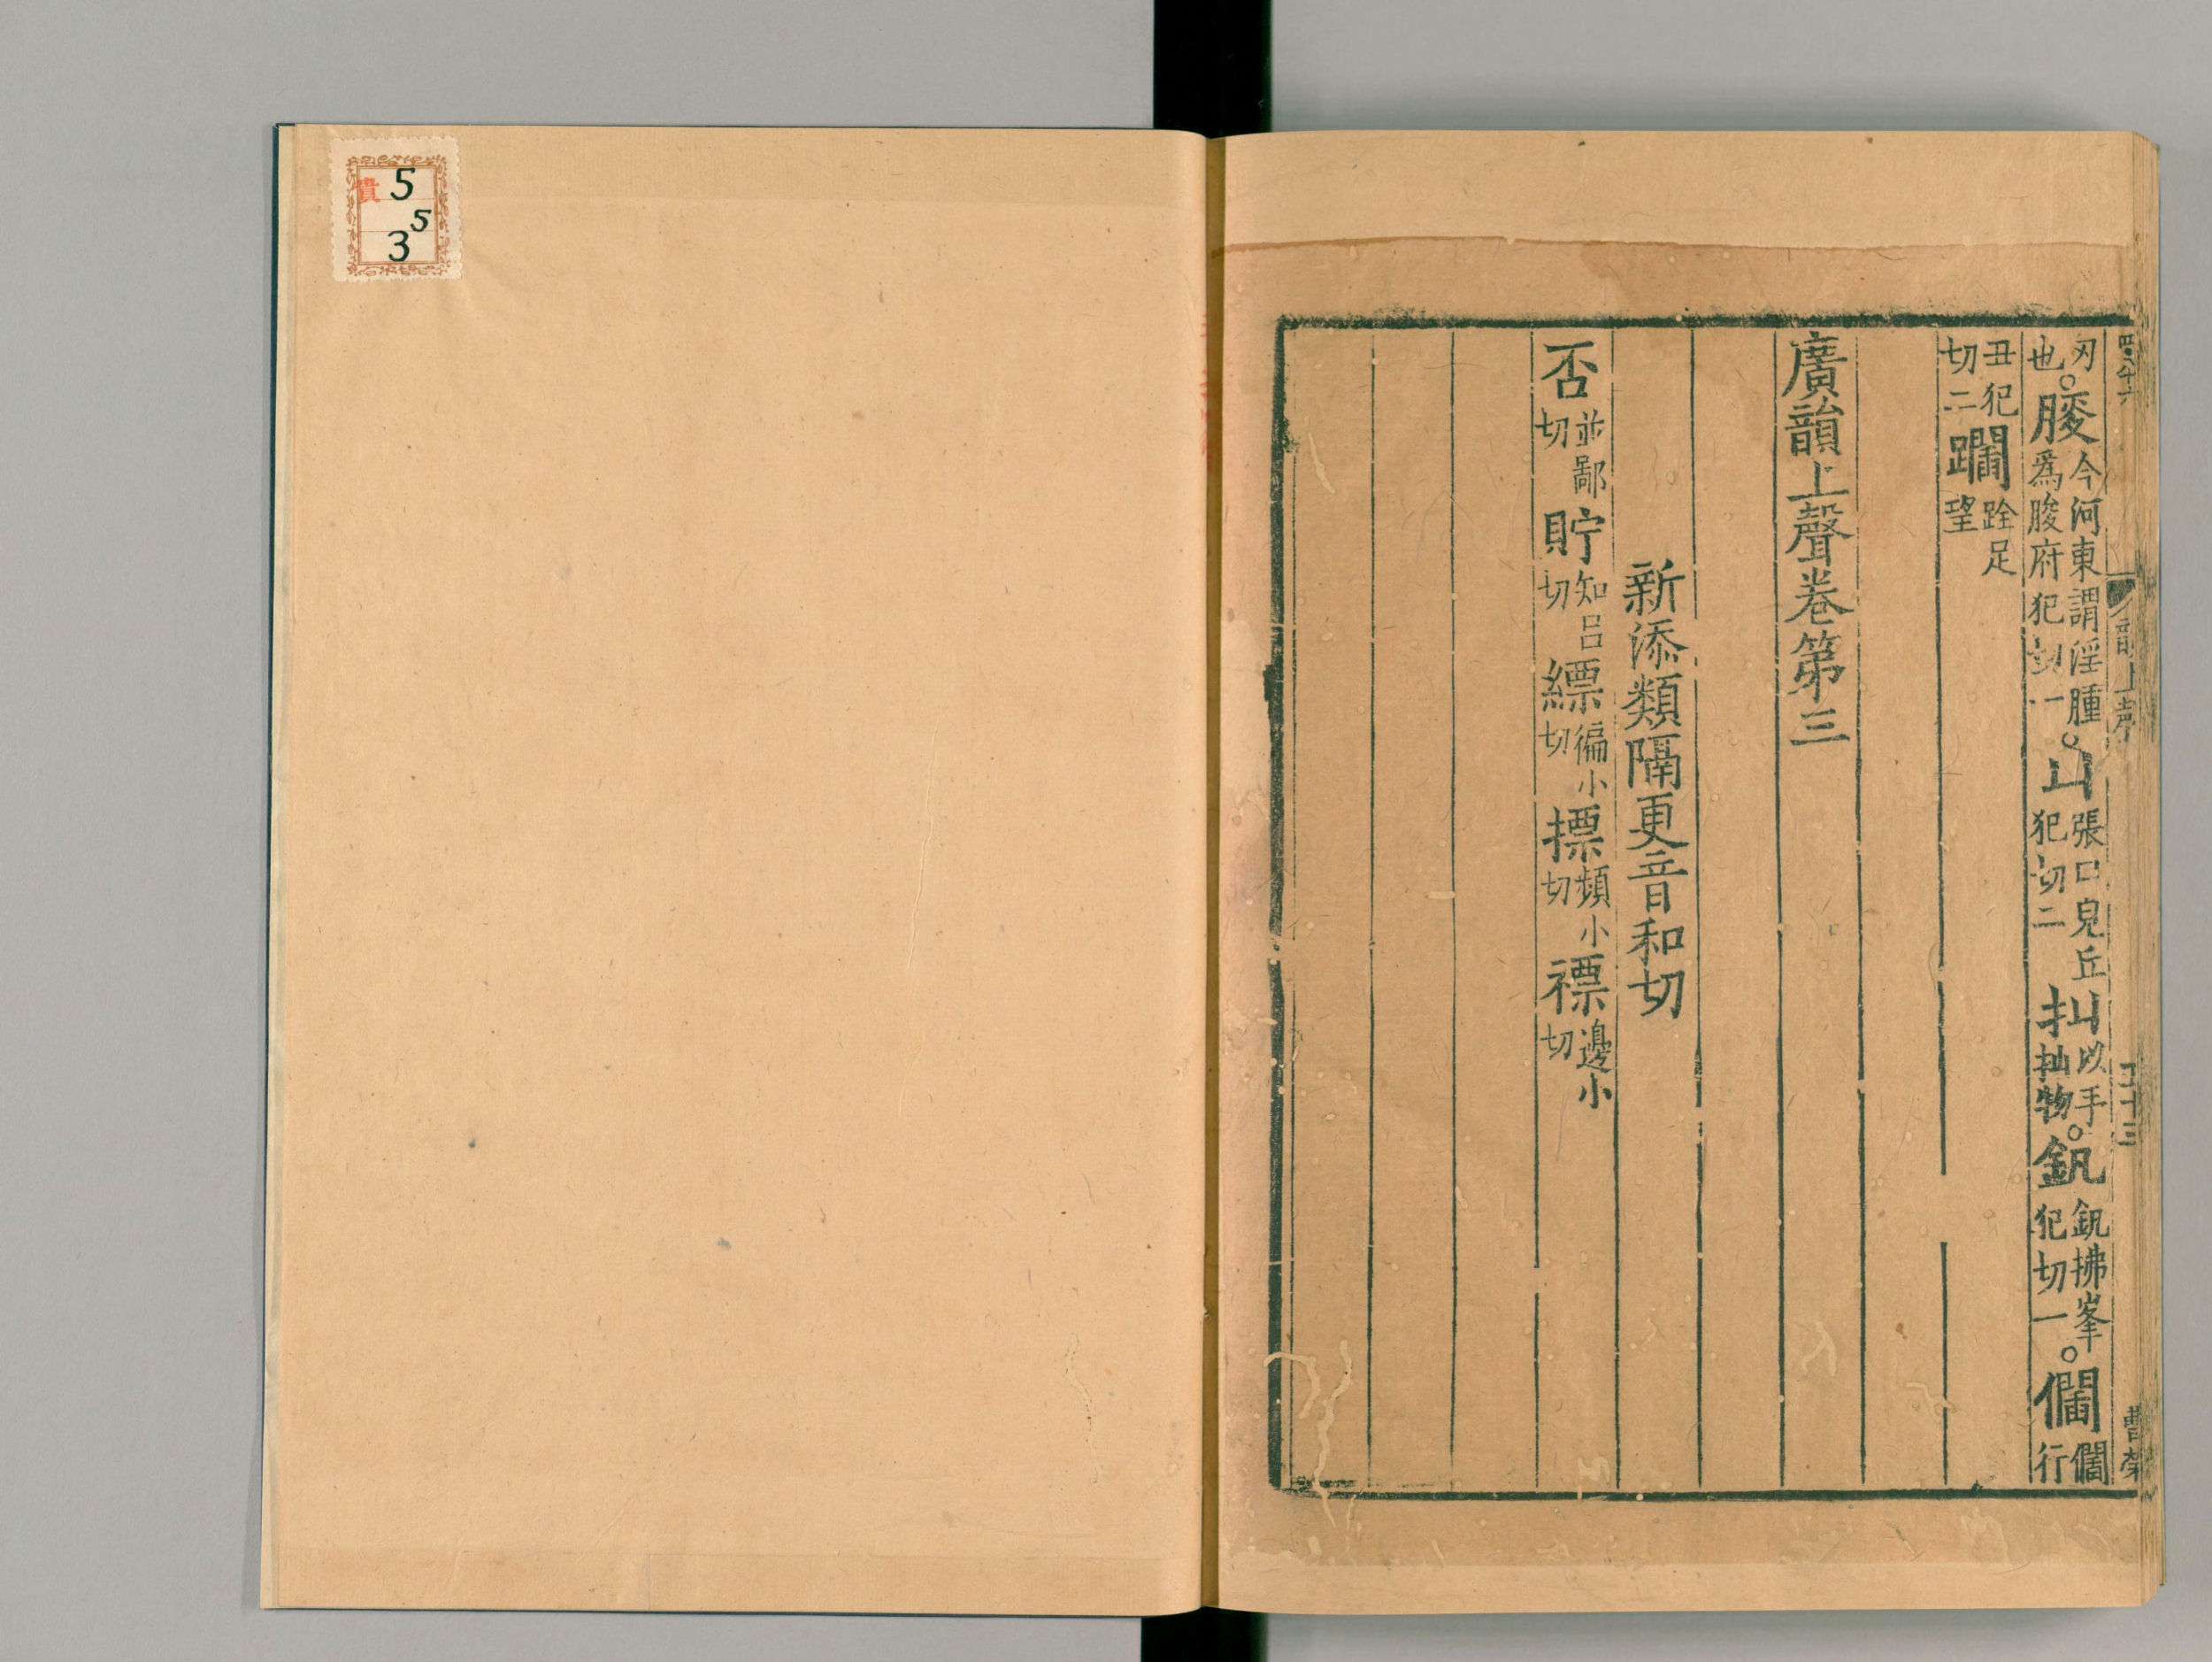 刃也。今河東謂淫腫為府犯切一。凵張口皃丘犯切二以手抽物。釩釩拂峯犯切一。行
丑犯切二跧足望
廣韻上聲卷第三
新添類隔更音和切
否並鄙切貯知呂切縹徧小切摽頻小切褾邊小切
韻上聲
五十三
曹榮
貴
5
5
3